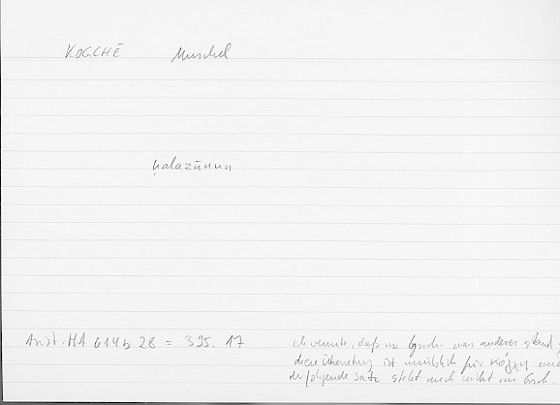 KOGCHĒ Muschel
ḥalazūnun
Arist. HA 614b 28 = 395. 17
ich vermute, daß im Gr. was anderes stand
diese Übersetzung ist unüblich für κόγχη und
der folgende Satz steht auch nicht im Gr.